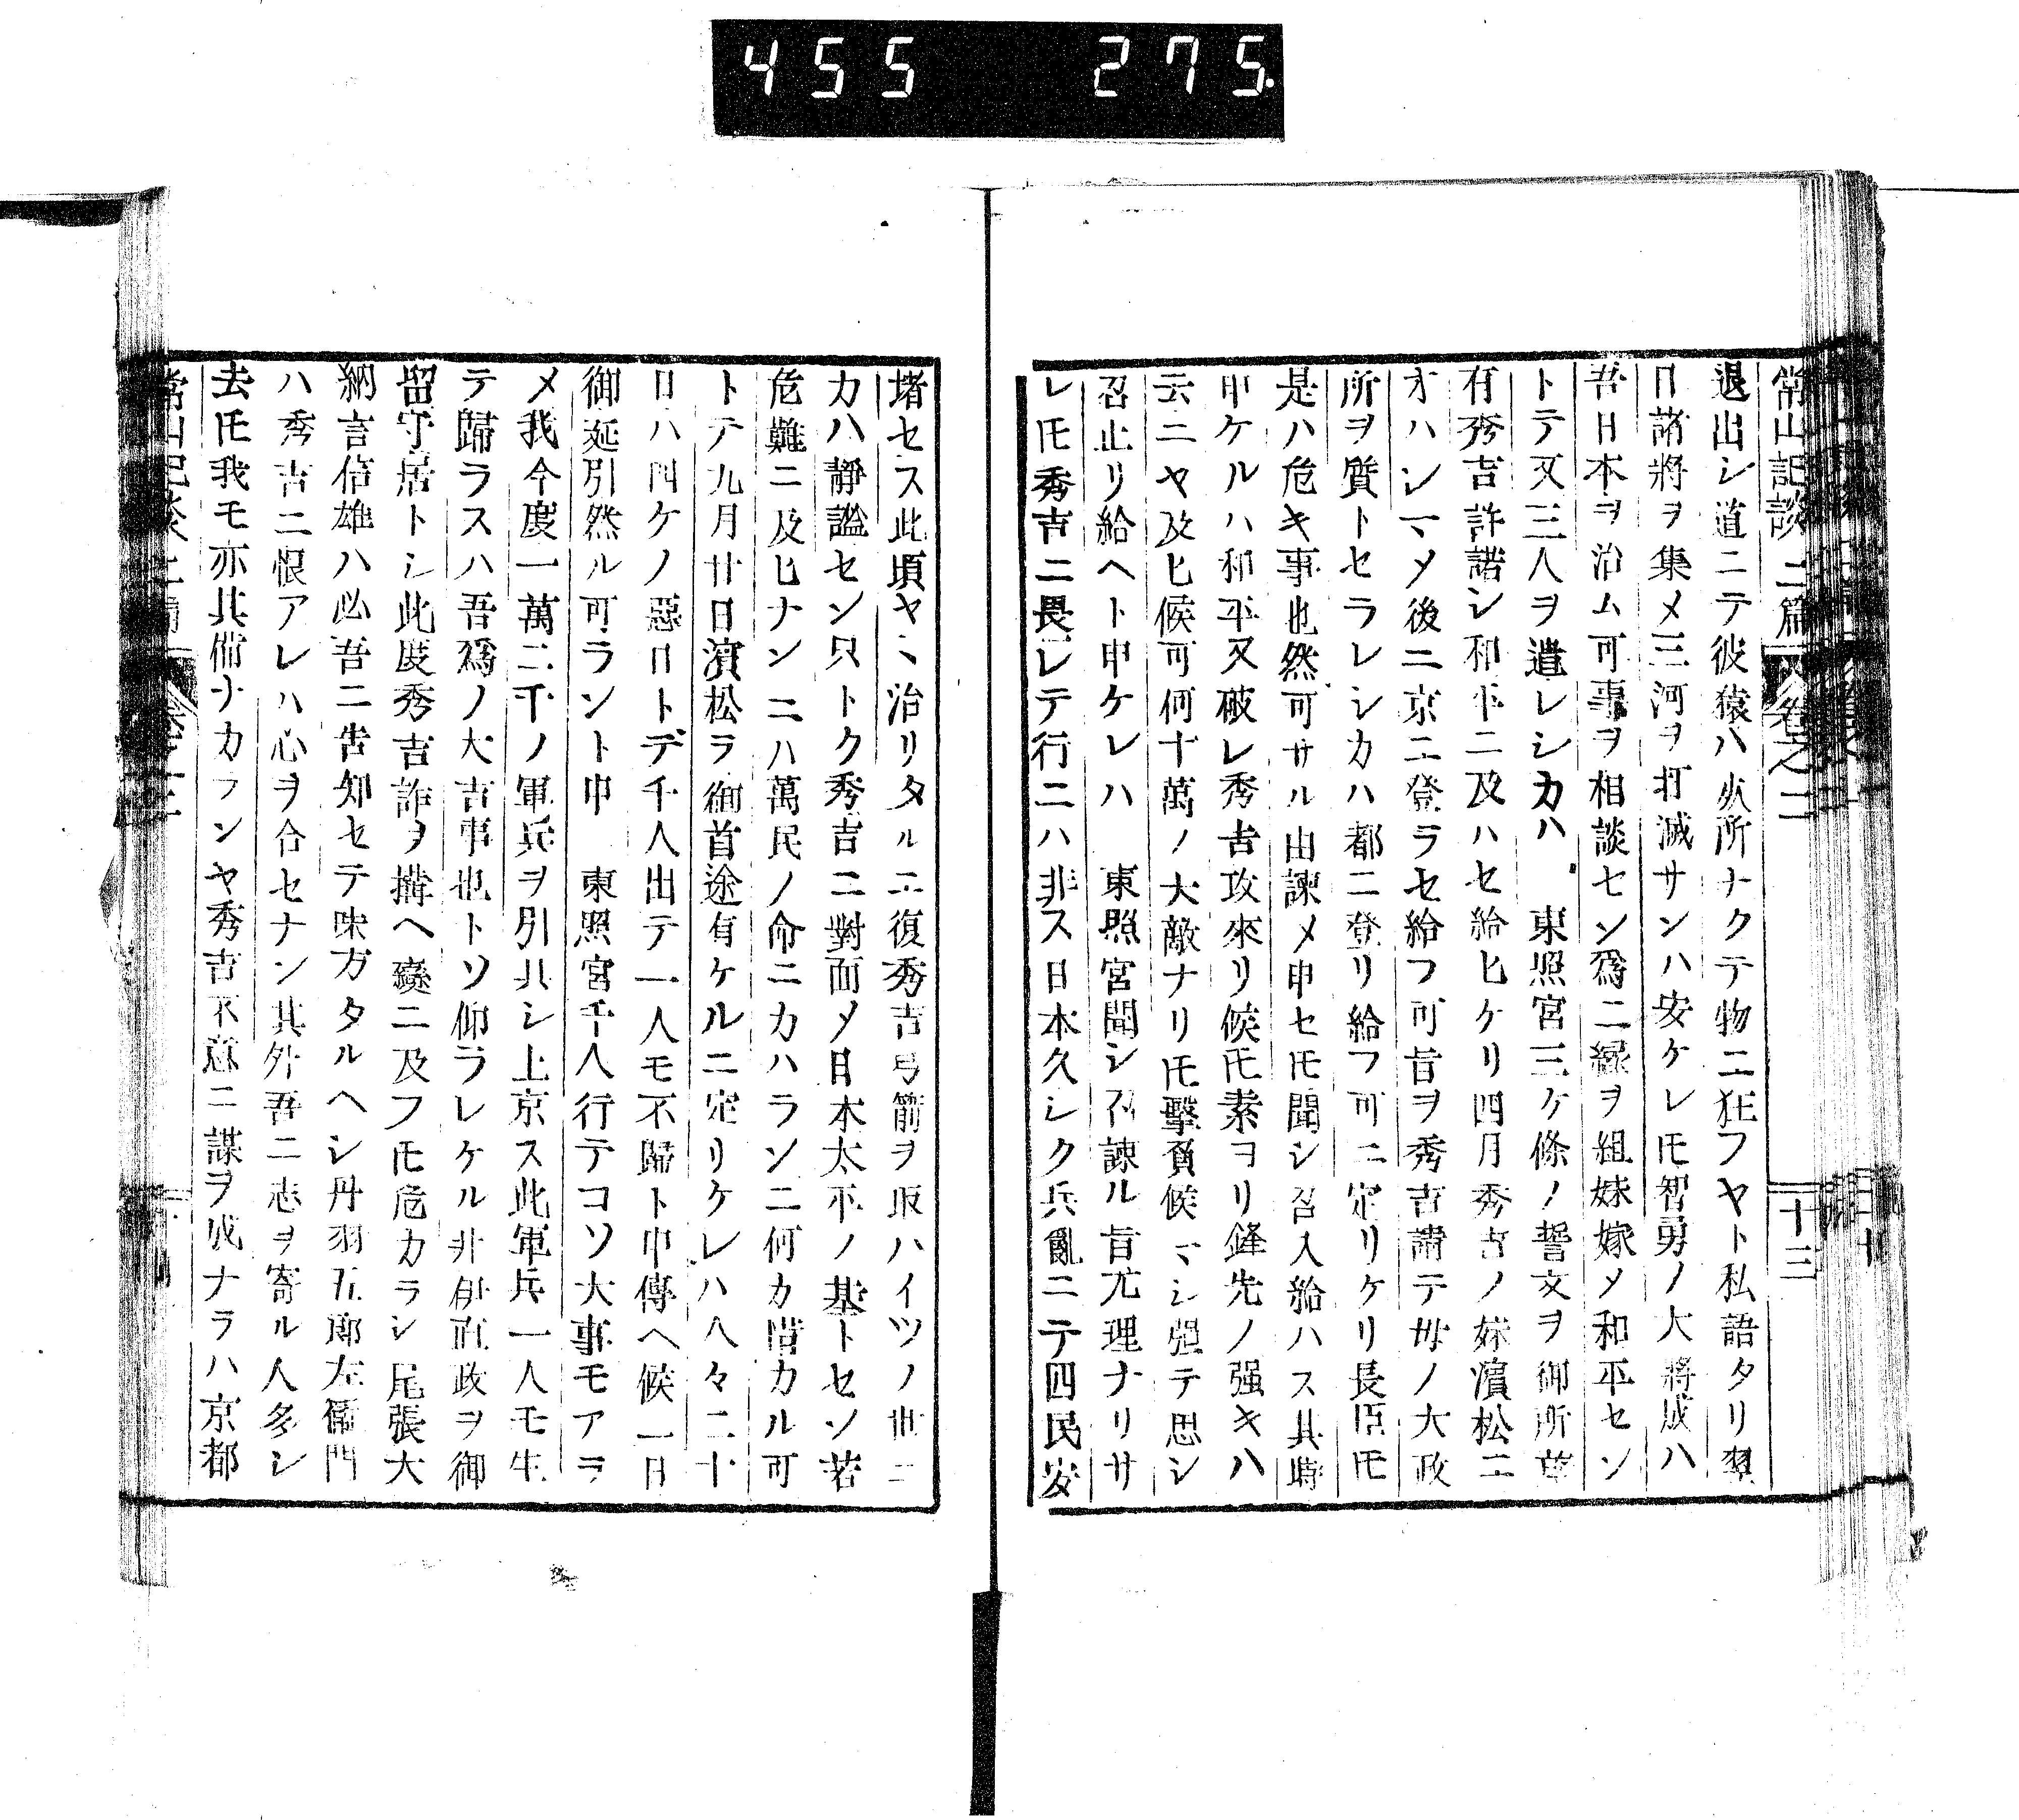 455 275
常山記談 二篇 卷之二 十三
退出シ道ニテ彼猿ハ火所ナクテ物ニ狂フヤト私語タリ翌
日諸將ヲ集メ三河ヲ打滅サンハ安ケレ𪜈智勇ノ大將成ハ
吾日本ヲ治ム可事ヲ相談セン爲ニ緣ヲ組妹嫁メ和平セン
トテ又三人ヲ遣レシカハ 東照宮三ケ條ノ誓文ヲ御所望
有秀吉許諾シ和平ニ及ハセ給ヒケリ四月秀吉ノ妹濵松ニ
オハシマメ後ニ京ニ登ラセ給フ可旨ヲ秀吉請テ母ノ大政
所ヲ質トセラレシカハ都ニ登リ給フ可ニ定リケリ長臣𪜈
是ハ危キ事也然可サル由諫メ申セ𪜈聞シ召入給ハス其時
申ケルハ和平又破レ秀吉攻來リ候𪜈素ヨリ鋒先ノ强キハ
云ニヤ及ヒ候可何十萬ノ大敵ナリ𪜈擊負候マシ强テ思シ
召止リ給ヘト申ケレハ 東照宮聞シ召諫ル旨尤理ナリサ
レ𪜈秀吉ニ畏レテ行ニハ非ス日本久シク兵亂ニテ四民安
堵セス此頃ヤヽ治リタルニ復秀吉弓箭ヲ取ハイツノ世ニ
カハ靜謐セン只トク秀吉ニ對面メ日本太平ノ基トセン若
危難ニ及ヒナンニハ萬民ノ命ニカハランニ何カ惜カル可
トテ九月廿日濵松ヲ御首途有ケルニ定リケレハ人々二十
日ハ四ケノ惡日トデ千人出テ一人モ不歸ト申傳ヘ候一日
御延引然ル可ラント申 東照宮千人行テコソ大事モアラ
メ我今度一萬二千ノ軍兵ヲ引具シ上京ス此軍兵一人モ生
テ歸ラスハ吾爲ノ大吉事也トソ仰ラレケル井伊直政ヲ御
留守居トシ此度秀吉詐ヲ搆ヘ變ニ及フ𪜈危カラシ尾張大
納言信雄ハ必吾ニ告知セテ味方タルヘシ丹羽五郞左衞門
ハ秀吉ニ恨アレハ心ヲ合セナン其外吾ニ志ヲ寄ル人多シ
去𪜈我モ亦其備ナカランヤ秀吉不意ニ謀ヲ成ナラハ京都